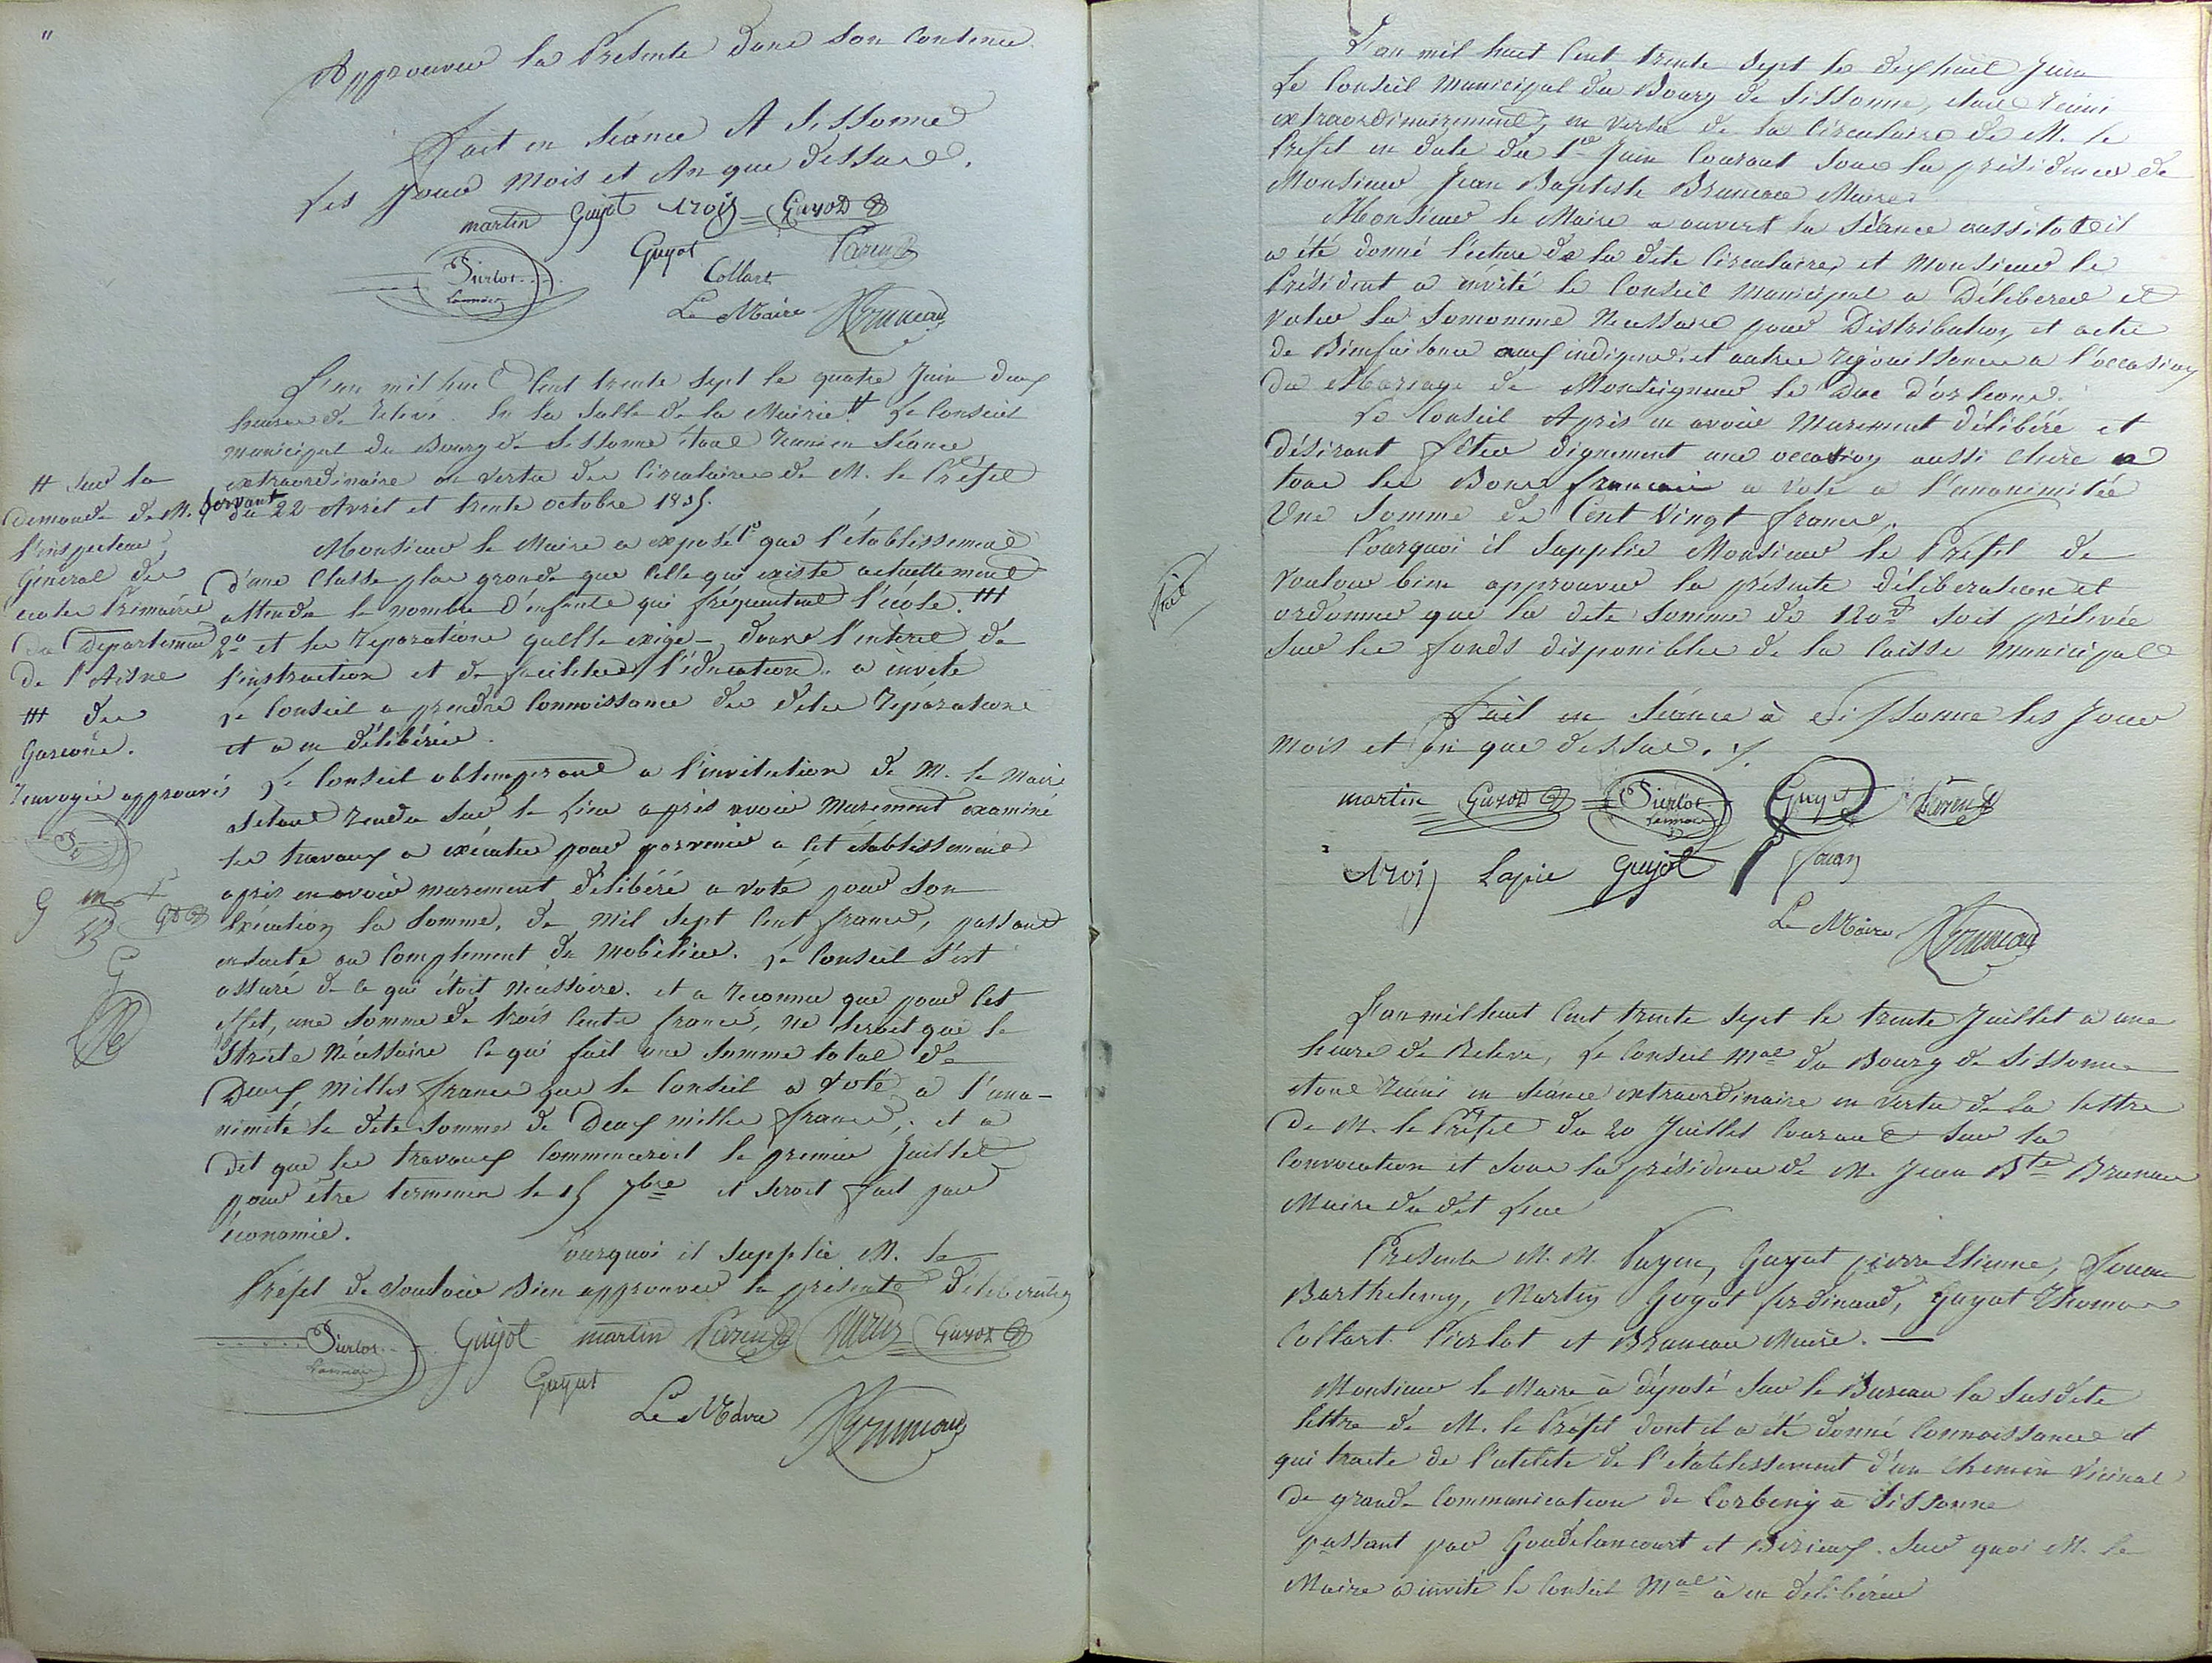 "
Approuver la Présente dans son Contenu
Fait en Séance A Sissonne
Les Jour Mois et An que dessus.
martin Guyot Arois Guyot
Guyot Paren
Pierlot Collart
Lannois
Le Maire Bruneau
L'an mil huit Cent trente Sept le quatre Juin deux
heures de Relevé. En la Salle de la Mairie # Le Conseil
municipal du Bourg de Sissonne étant réuni en Séance
extraordinaire en vertu des Circulaires de M. le Préfet
du 22 Avril et trente octobre 1835.
Monsieur le Maire a exposé 1º que l'établissement
d'une Classe plus grande que Celle qui existe actuellement
attendu le nombre d'enfants qui fréquentent l'école. ##
2º et les réparations qu'elle exige dans l'intérêt de
l'instruction et de faciliter l'éducation. a invité
le Conseil a prendre Connoissance des dites réparations
et a en délibérer.
Le Conseil obtempérant a l'invitation de M. le Maire
s'étant rendu sur le lieu après avoir murement examiné
les travaux a exécuter pour parvenir a Cet établissement
après en avoir murement délibéré a voté pour Son
Exécution la Somme, de mil Sept Cent francs, passant
ensuite au Complement du mobilier. Le Conseil s'est
assuré de Ce qui étoit nécéssaire. et a reconnu que pour Cet
effet, une Somme de trois Cents francs, ne Seroit que le
Stricte Nécéssaire Ce qui fait une Somme total de
Deux Milles francs que le Conseil a voté a l'una-
nimité la dite Somme de Deux milles francs; et a
dit que les travaux Commenceroit le premier Juillet
pour être terminer le 15 7bre et Seroit fait par
économie.
Pourquoi il Supplie M. le
Préfet de Vouloir Bien approuver la présente délibération
Pierlot Guyot martin Paren Guyot
Lannois
Guyot
Le Maire Bruneau
# Sur la
demande de M. Servant
l'inspecteur
Général des
écoles Primaires
du Département
de l'Aisne
## des
Garçons.
renvoyés approuvés
P
G m P
G
L'an mil huit Cent trente Sept le dix huit Juin
Le Conseil Municipal du Bourg de Sissonne, étant réuni
extraordinairement, en vertu de la Circulaire de M. le
Préfet en date du 1er Juin Courant Sous la présidence de
Monsieur Jean Baptiste Bruneau Maire.
Monsieur le Maire a ouvert la Séance aussitot il
a été donné l'ecture de la dite Circulaire, et Monsieur le
Président a invité le Conseil Municipal a Délibérer et
voter la Somomme Nécessaire pour Distribution, et actes
de Bienfaisance aux indigens et autres réjouissances a l'occasion
du Mariage de Monseigneur le Duc d'orléans.
Le Conseil Après en avoir Murement délibéré et
désirant fêter dignement une occasion aussi chère a
tous les Bons français a voté a l'ananimitée
Une Somme de Cent Vingt francs.
Pourquoi il Supplie Monsieur le Préfet de
Vouloir bien approuver la présente délibération et
ordonner que la dite Somme de 120f Soit prélevée
Sur les fonds disponibles de la Caisse Municipal
Fait en Séance à Sissonne les Jour
Mois et An que dessus. ./.
martin Guyot Pierlot Guyot Paren
Lannois
Arois Lapie Guyot Jouan
Le Maire Bruneau
fait
L'an mil huit Cent trente Sept le trente Juillet a une
heure de Relevé, Le Conseil Mal du Bourg de Sissonne
étant réuni en Séance extraordinaire en vertu de la lettre
De M. le Préfet du 20 Juillet Courant Sur la
Convocation et Sous la présidence de M. Jean Bte Bruneau
Maire du dit Lieu
Présents M. M. Payen, Guyot pierre Etienne, Jouan
Barthelemy, Martin Guyot ferdinand, Guyot Thomas
Collart Pierlot et Bruneau Maire. —
Monsieur le Maire à déposé Sur le Bureau la Susdite
lettre de M. le Préfet dont il a été donné Connoissance et
qui traite de l'utilité de l'établissement d'un Chemin Vicinal
de grande Communication de Corbeny à Sissonne
passant par Goudelancourt et Bérieux. Sur quoi M. le
Maire a invité le Conseil Mal à en délibérer